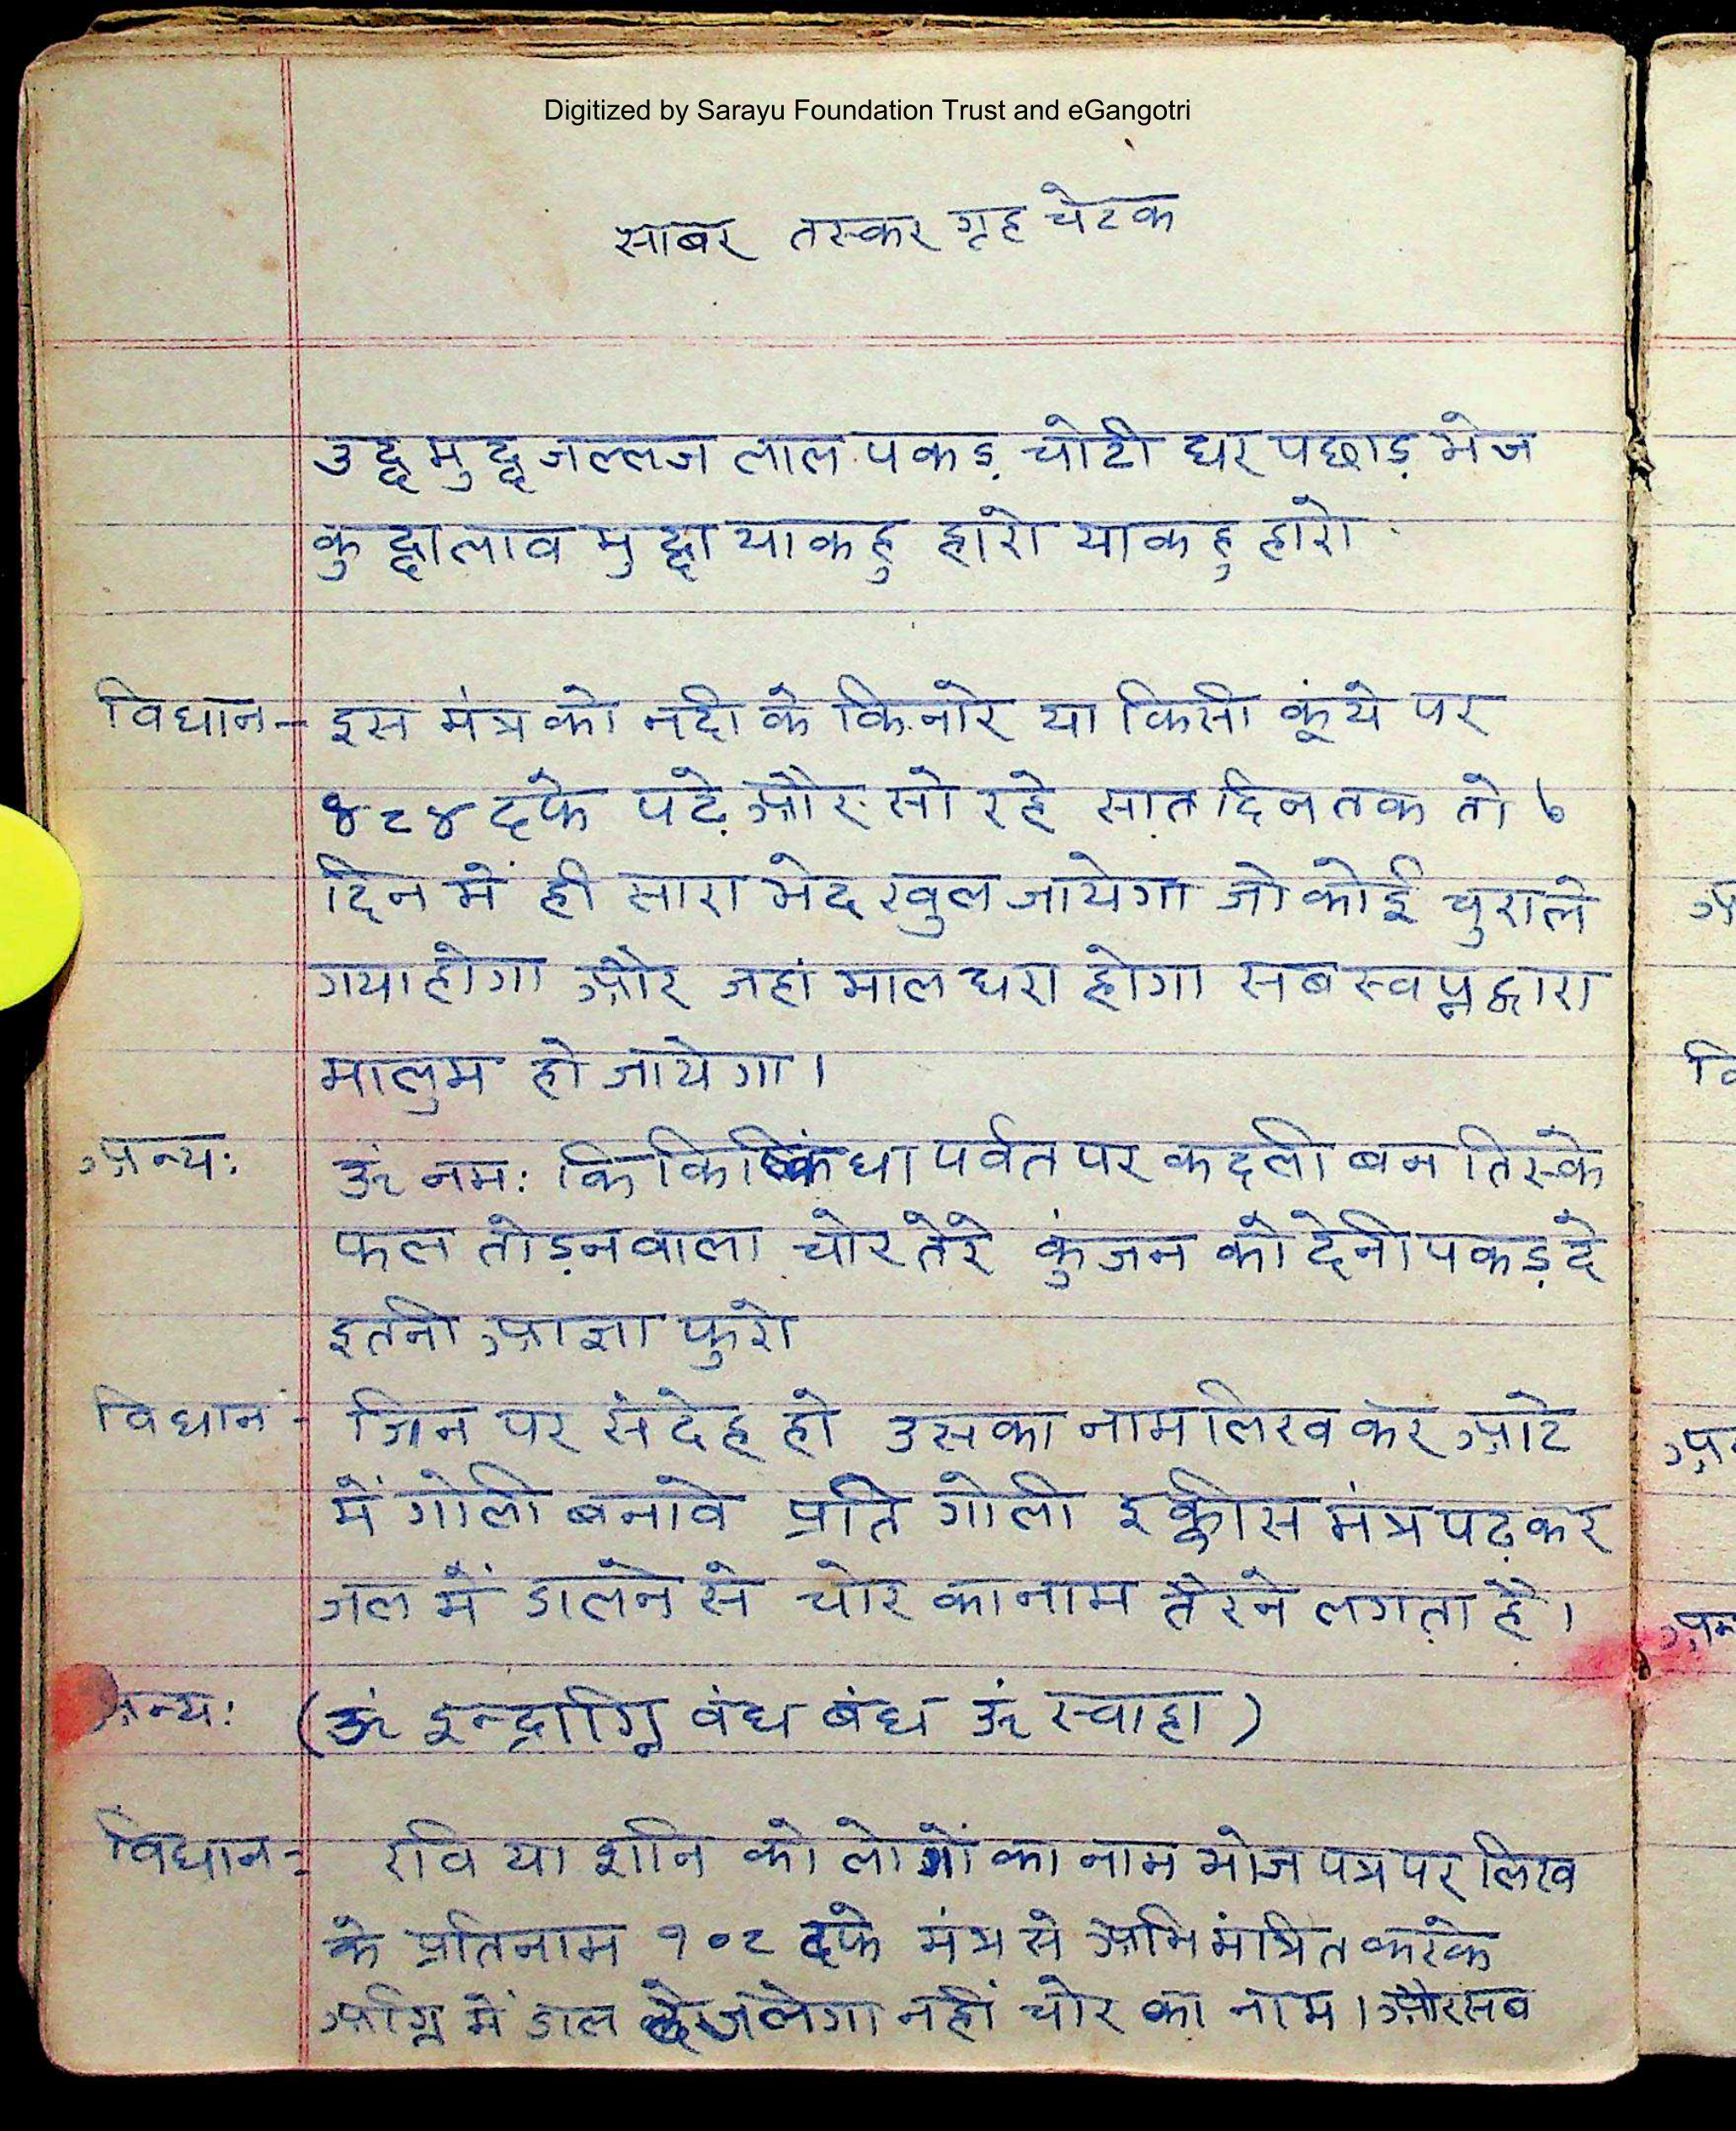 Digitized by Sarayu Foundation Trust and eGangotri
साबर तस्कर गृह चेटक
उद्द मुद्द जल्लज लाल पकड़ चोटी धर पछाड़ भेज
कुद्दा लाव मुद्दा या कहु हारो या कहु हारो
विधान - इस मंत्र को नदी के किनारे या किसी कूंये पर
४८४ दफे पढ़े और सो रहे सात दिन तक तो ७
दिन में ही सारा भेद खुल जायेगा जो कोई चुरा ले
गया होगा और जहां माल धरा होगा सब स्वप्न द्वारा
मालुम हो जायेगा।
अन्य: ॐ नम: कि किष्किंधा पर्वत पर कदली बन तिस्के
फल तोड़न वाला चोर तेरे कुंजन को देनी पकड़ दे
इतनी आज्ञा फुरो
विधान - जिन पर संदेह हो उसका नाम लिख कर आटे
में गोली बनावे प्रति गोली इक्कीस मंत्र पढ़ कर
जल में डालने से चोर का नाम तैरने लगता है।
अन्य: (ॐ इन्द्राग्नि वंध बंध ॐ स्वाहा)
विधान - रवि या शनि को लोगों का नाम भोज पत्र पर लिख
के प्रतिनाम १०८ दफे मंत्र से अभिमंत्रित करके
अग्नि में डाल दे जलेगा नहीं चोर का नाम। और सब